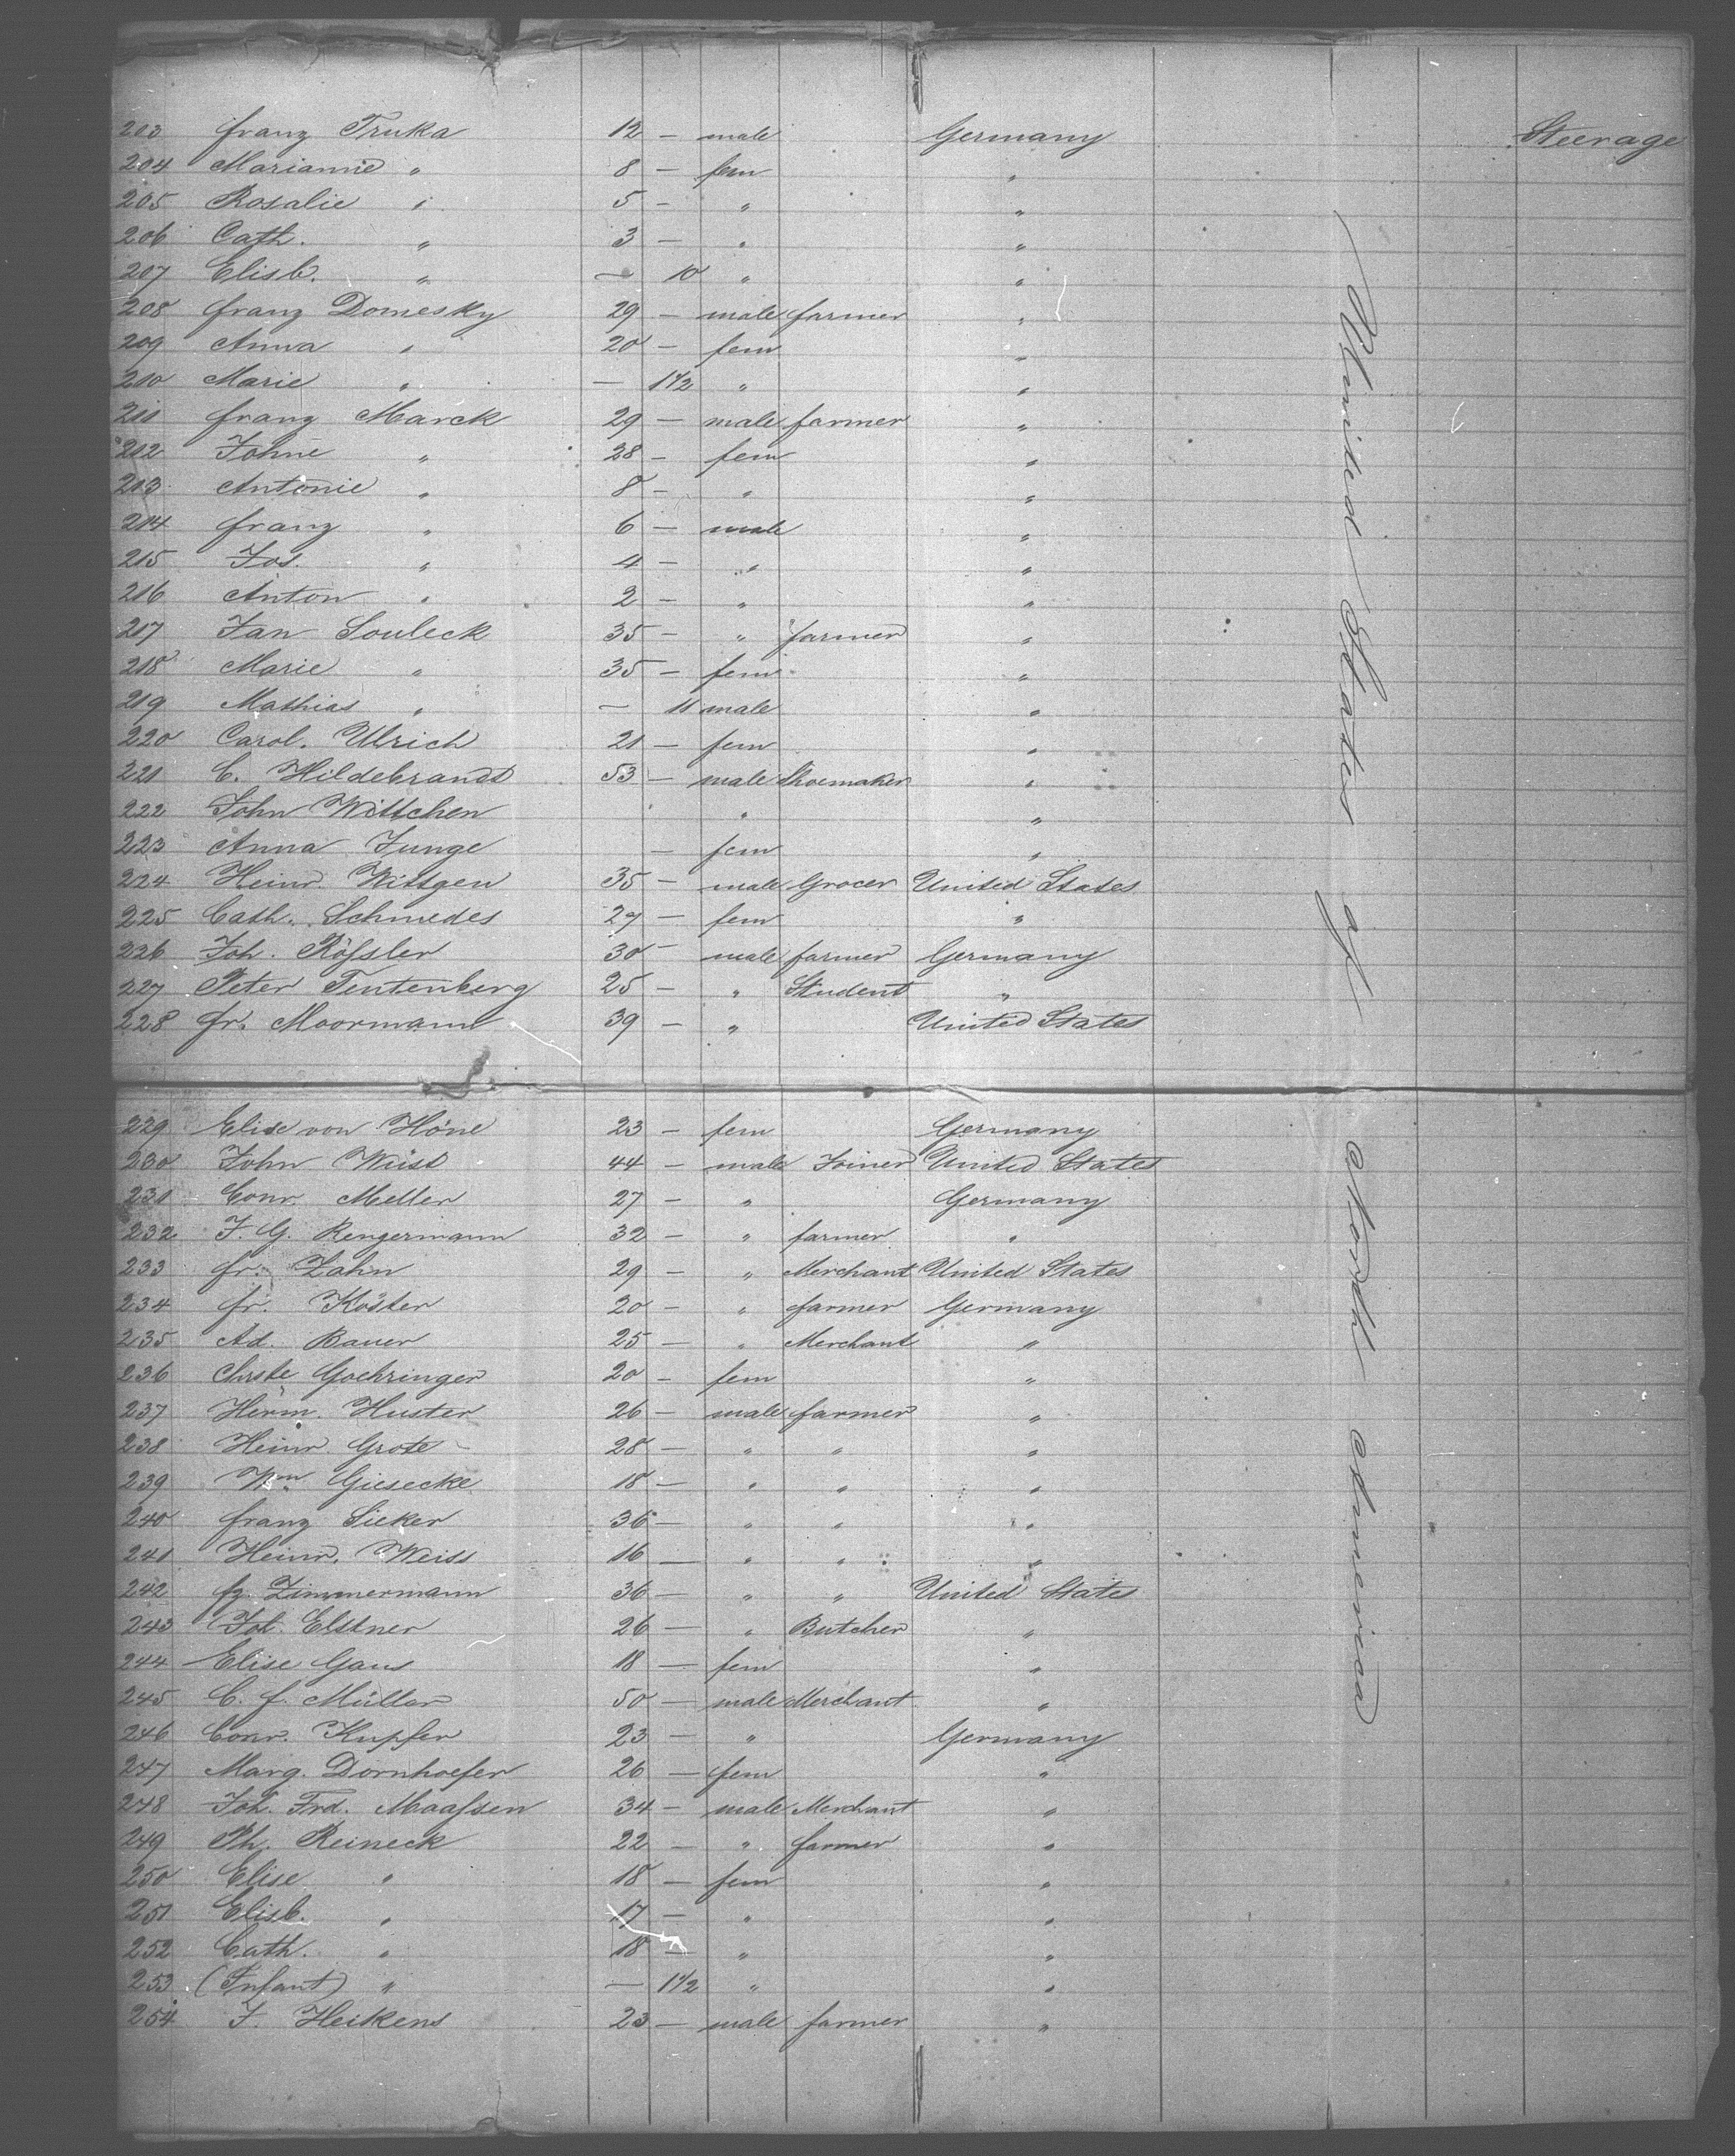 203 Franz Truka 12 — male Germany Steerage
204 Marianne " 8 — fem "
205 Rosalie " 5 — " "
206 Cath. " 3 — " "
207 Elisb. " — 10 " "
208 Franz Domesky 29 — male farmer "
209 Anna " 20 — fem "
210 Marie " — 1 1/2 " "
211 Franz Marck 29 — male farmer "
212 Johne " 28 — fem "
213 Antonie " 8 — " "
214 Franz " 6 — male "
215 Jos. " 4 — " "
216 Anton " 2 — " "
217 Jan Souleck 35 — " farmer "
218 Marie " 35 — fem "
219 Mathias " — 11 male "
220 Carol. Ulrich 21 — fem "
221 C. Hildebrandt 53 — male Shoemaker "
222 John Wittchen " "
223 Anna Junge — fem "
224 Heinr. Wittgen 35 — male Grocer United States
225 Cath. Schmedes 29 — fem "
226 Joh. Rößler 30 — male farmer Germany
227 Peter Tentenberg 25 — " Student "
228 Fr. Moormann 39 — " United States
229 Elise von Höne 23 — fem Germany
230 John Wüst 44 — male Joiner United States
231 Conr. Meller 27 — " Germany
232 J. G. Rengermann 32 — " farmer "
233 Fr. Zahn 29 — " Merchant United States
234 Fr. Köster 20 — " farmer Germany
235 Ad. Bauer 25 — " Merchant "
236 Chrste Goehringer 20 — fem "
237 Herm. Huster 26 — male farmer "
238 Heinr. Grote 28 — " " "
239 Wm. Giesecke 18 — " " "
240 Franz Sieker 36 — " " "
241 Heinr. Weiss 16 — " " "
242 Fz. Zimmermann 36 — " " United States
243 Joh. Elstner 26 — " Butcher "
244 Elise Gaus 18 — fem "
245 C. F. Müller 50 — male Merchant "
246 Conr. Kupfer 23 — " Germany
247 Marg. Dornhoefer 26 — fem "
248 Joh. Frd. Maaßen 34 — male Merchant "
249 Ph. Reineck 22 — " farmer "
250 Elise " 18 — fem "
251 Elisb. " 17 — " "
252 Cath. " 18 — " "
253 (Infant) " — 1 1/2 " "
254 J. Heikens 23 — male farmer "
United States of North America